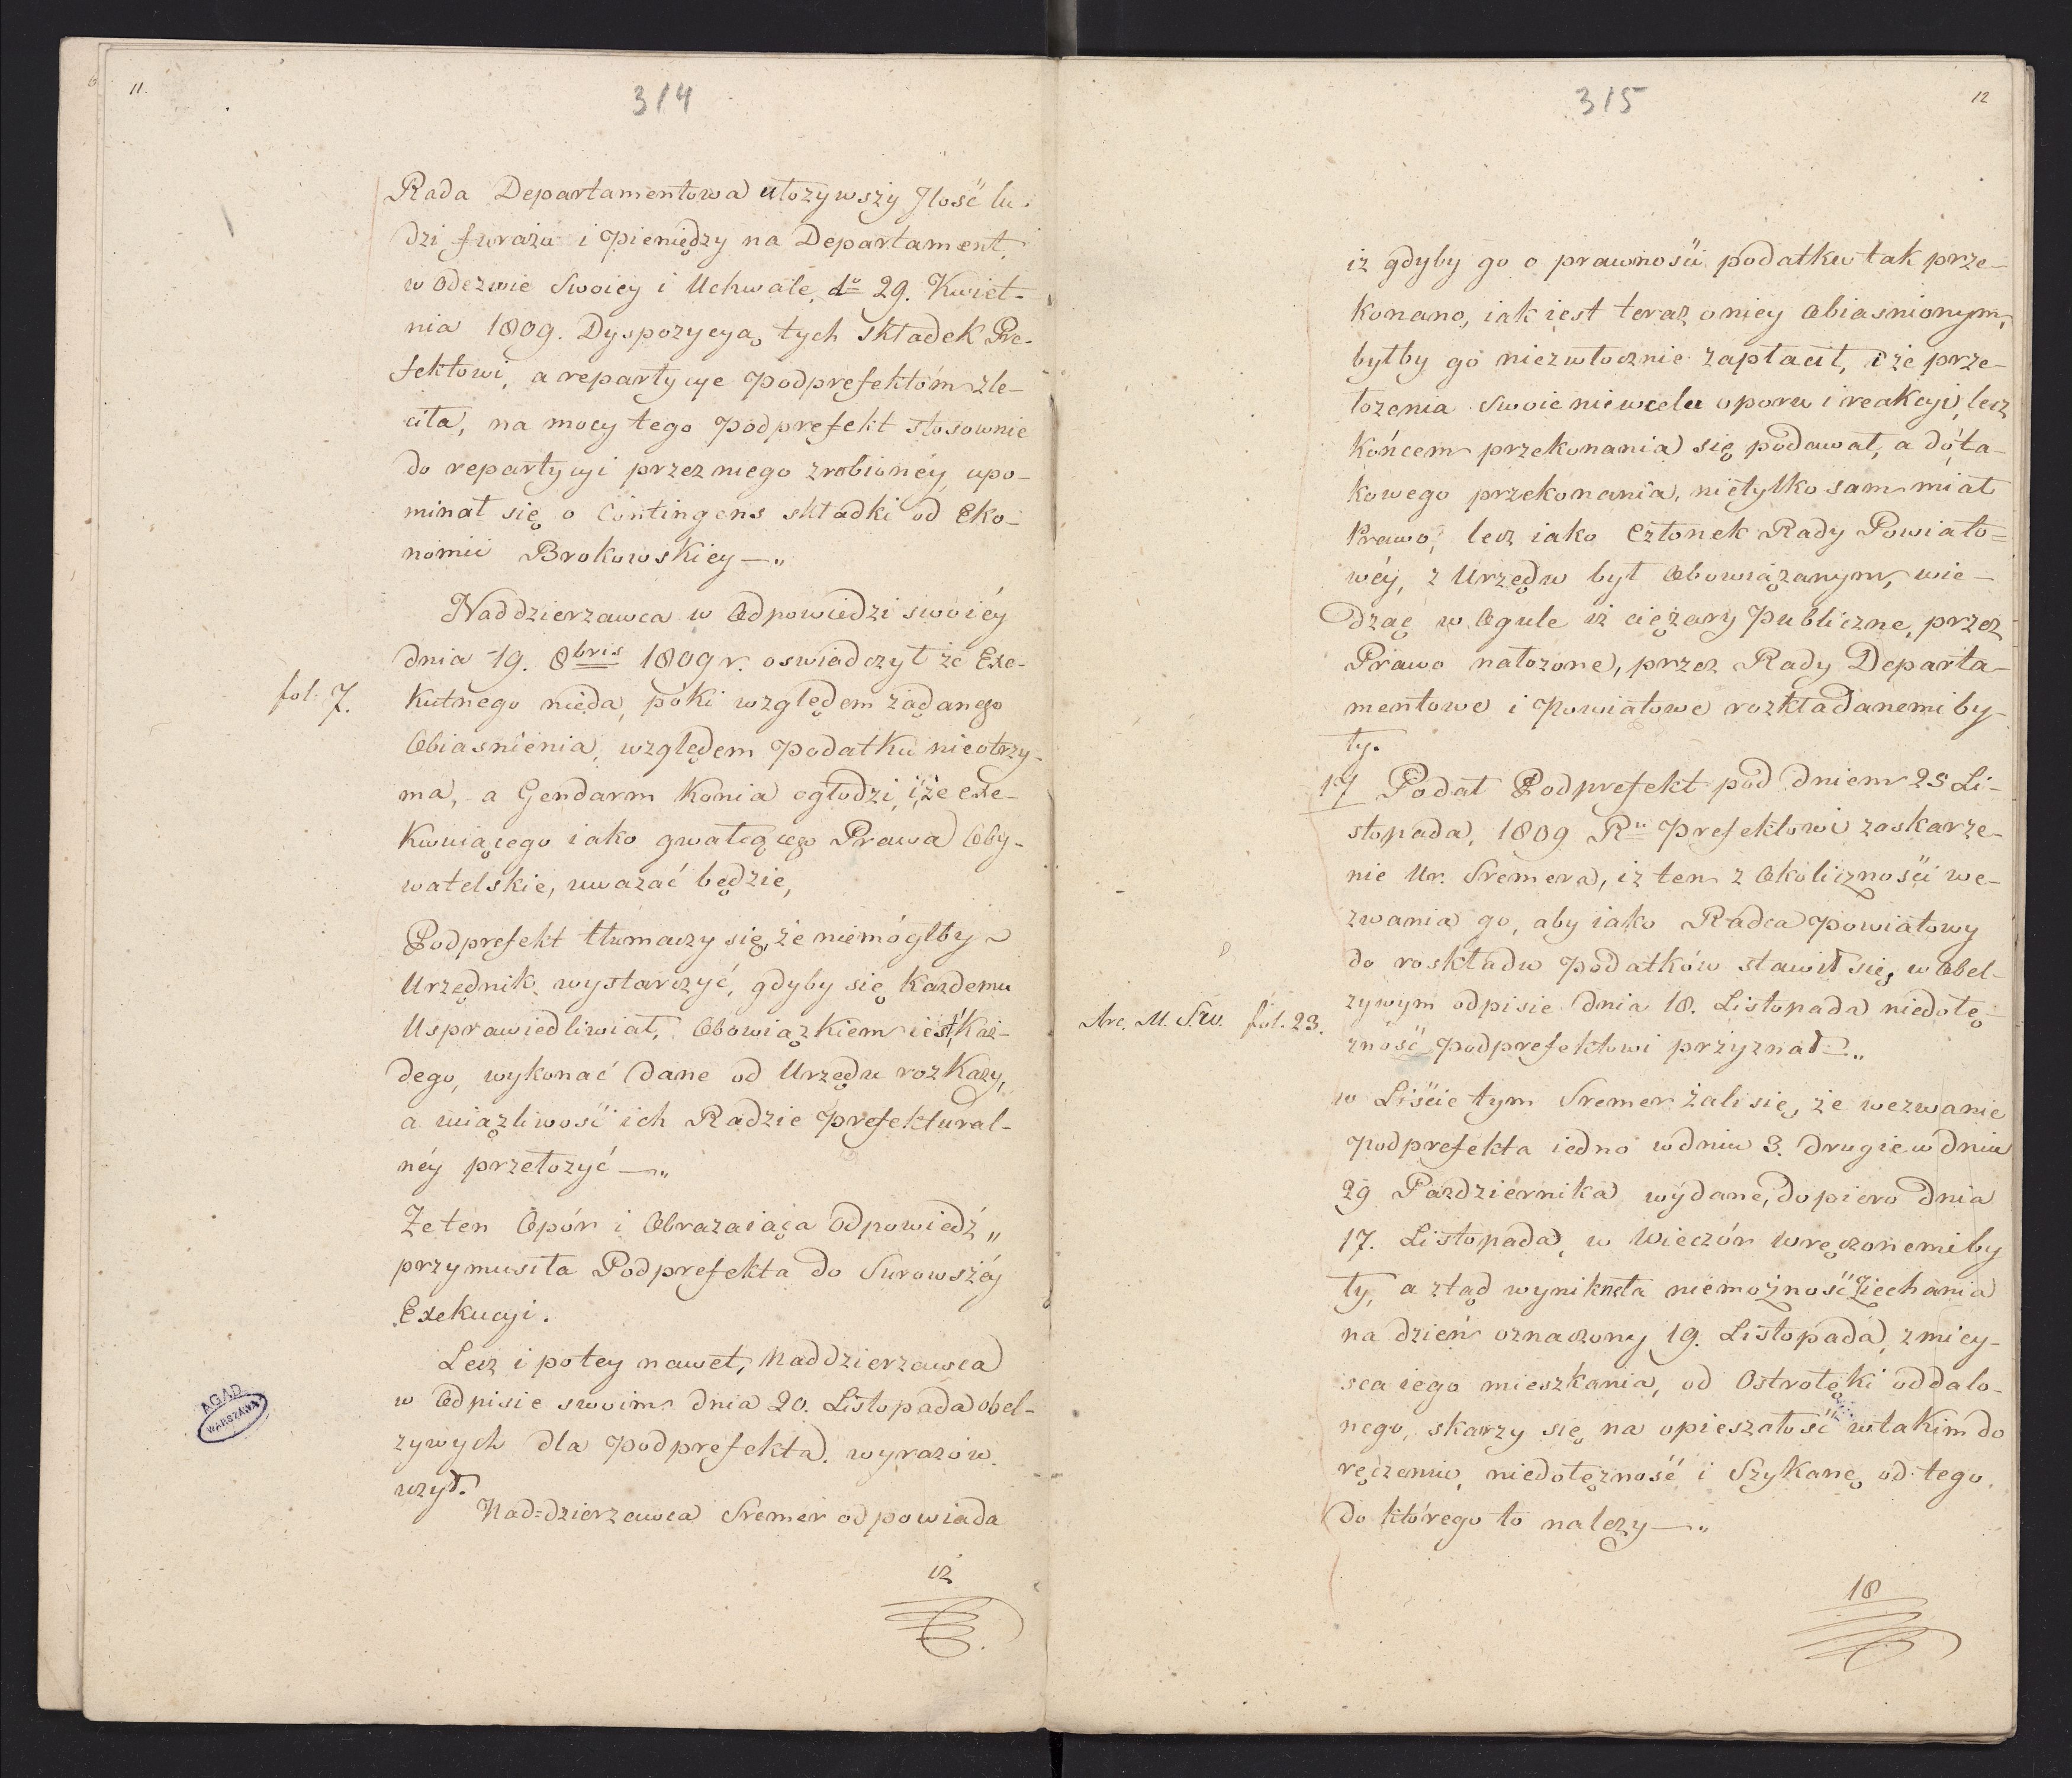 11.
314
Rada Departamentowa ułożywszy Jlość lu-
dzi furażu i Pieniędzy na Departament,
w odezwie Swoiey i Uchwale, do 29. Kwiet-
nia 1809. Dyspozycyą tych składek Pre-
fektowi, a repartycye Podprefektóm zle-
ciła, na mocy tego Podprefekt stosownie
do repartycyi przez niego zrobionéy, upo-
minał się o Contingens składki od Eko-
nomii Brokowskiey —„
Naddzierzawca w Odpowiedzi swoiéy
dnia 19. 8bris 1809 r. oswiadczył że Exe-
fol: 7.
kutnego nieda, póki względem żądanego
Obiasnienia, względem Podatku nieotrzy-
ma, a Gendarm Konia ogłodzi, iże exe-
kwuiącego iako gwałcącego Prawa Oby-
watelskie, uważać będzie,
Podprefekt tłumaczy się, że niemógłby
Urzędnik wystarczyć, gdyby się każdemu
Usprawiedliwiał, Obowiązkiem iest Każ-
dego, wykonać dane od Urzędu rozkazy,
a uciążliwość ich Radzie Prefektural-
néy przełożyć —„
Że ten Opór i Obrażaiąca odpowiedź „
przymusiła Podprefekta do Surowszéy
Exekucyi.
Lecz i potey nawet, Naddzierzawca
w Odpisie swoim dnia 20. Listopada obel-
zywych dla Podprefekta wyrazów
użył.
Nad=dzierzawca Sremer odpowiada
iż
AGAD
WARSZAWA
12
315
iż gdyby go o prawności podatku tak prze-
konano, iak iest teraz oniey Obiasnionym,
byłby go niezwłocznie zapłacił, iże prze-
łożenia swoie niewcelu oporu i reakcyi, lecz
końcem przekonania się podawał, a do ta-
kowego przekonania, nietylko sam miał
Prawo, lecz iako Członek Rady Powiato=
wéy, z Urzędu był Obowiązanym, wie-
dząc w Ogule iż ciężary Publiczne, przez
Prawo nałożone, przez Rady Departa-
mentowe i Powiatowe rozkładanemi by-
ły.
17 Podał Podprefekt pod dniem 25 Li-
stopada, 1809 Ru Prefektowi zaskarze-
nie Ur. Sremera, iż ten z Okoliczności we-
zwania go, aby iako Radca Powiatowy
do roskładu Podatków stawił się, w Obel-
zywym odpisie dnia 18. Listopada niedołę-
fol. 23.
zność Podprefektowi przyznał —„
w Liście tym Sremer żali się, że wezwanie
Podprefekta iedno wdniu 3. drugie w dniu
29 Pazdziernika wydane, dopiero dnia
17. Listopada, w Wieczór wręczonemi by
ły, a ztąd wynikneła niemożność Ziechania
na dzień oznaczony 19. Listopada, zmiey-
sca iego mieszkania, od Ostrołęki oddalo-
nego, skarzy się na opieszałość wtakim do
ręczeniu, niedołężność i Szykanę od tego
do którego to należy —„
18